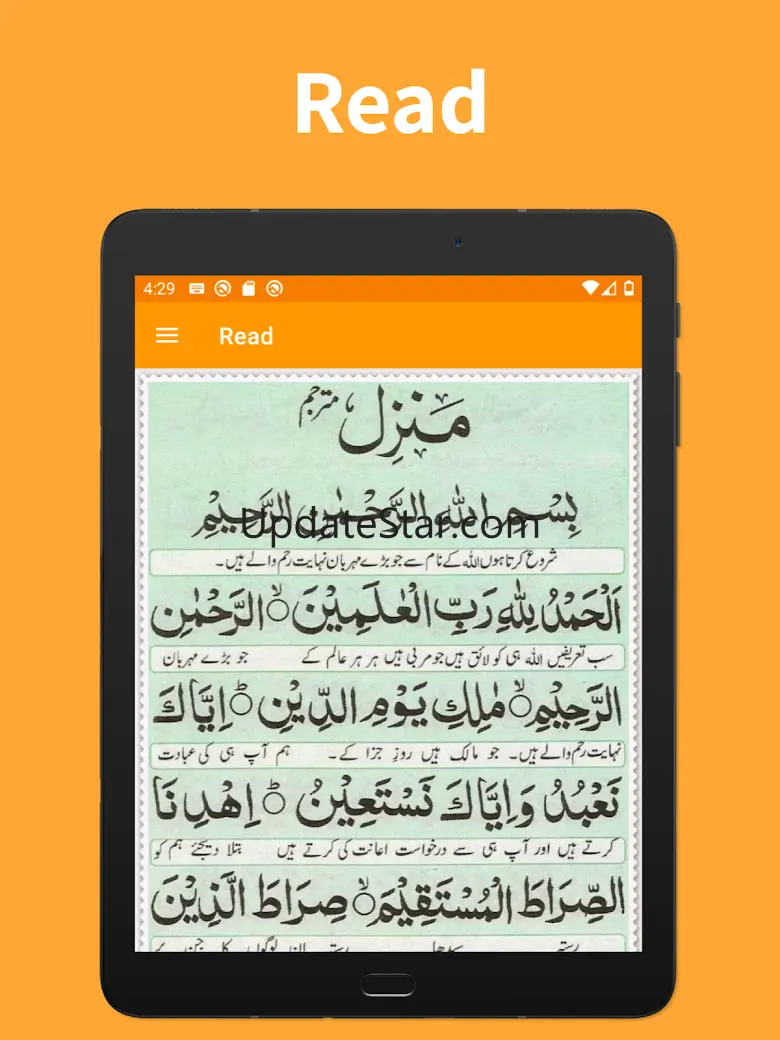 Read
4:29
Read
مَنْزِل مترجم
بِسْمِ اللهِ الرَّحْمٰنِ الرَّحِيْمِ
UpdateStar.com
شروع کرتا ہوں اللہ کے نام سے جو بڑے مہربان نہایت رحم والے ہیں۔
اَلْحَمْدُ لِلّٰهِ رَبِّ الْعٰلَمِيْنَ ۙ الرَّحْمٰنِ
سب تعریفیں اللہ ہی کو لائق ہیں جو مربی ہیں ہر ہر عالم کے جو بڑے مہربان
الرَّحِيْمِ ۙ مٰلِكِ يَوْمِ الدِّيْنِ ؕ اِيَّاكَ
نہایت رحم والے ہیں۔ جو مالک ہیں روزِ جزا کے۔ ہم آپ ہی کی عبادت
نَعْبُدُ وَاِيَّاكَ نَسْتَعِيْنُ ؕ اِهْدِنَا
کرتے ہیں اور آپ ہی سے درخواست اعانت کی کرتے ہیں بتلا دیجئے ہم کو
الصِّرَاطَ الْمُسْتَقِيْمَ ۙ صِرَاطَ الَّذِيْنَ